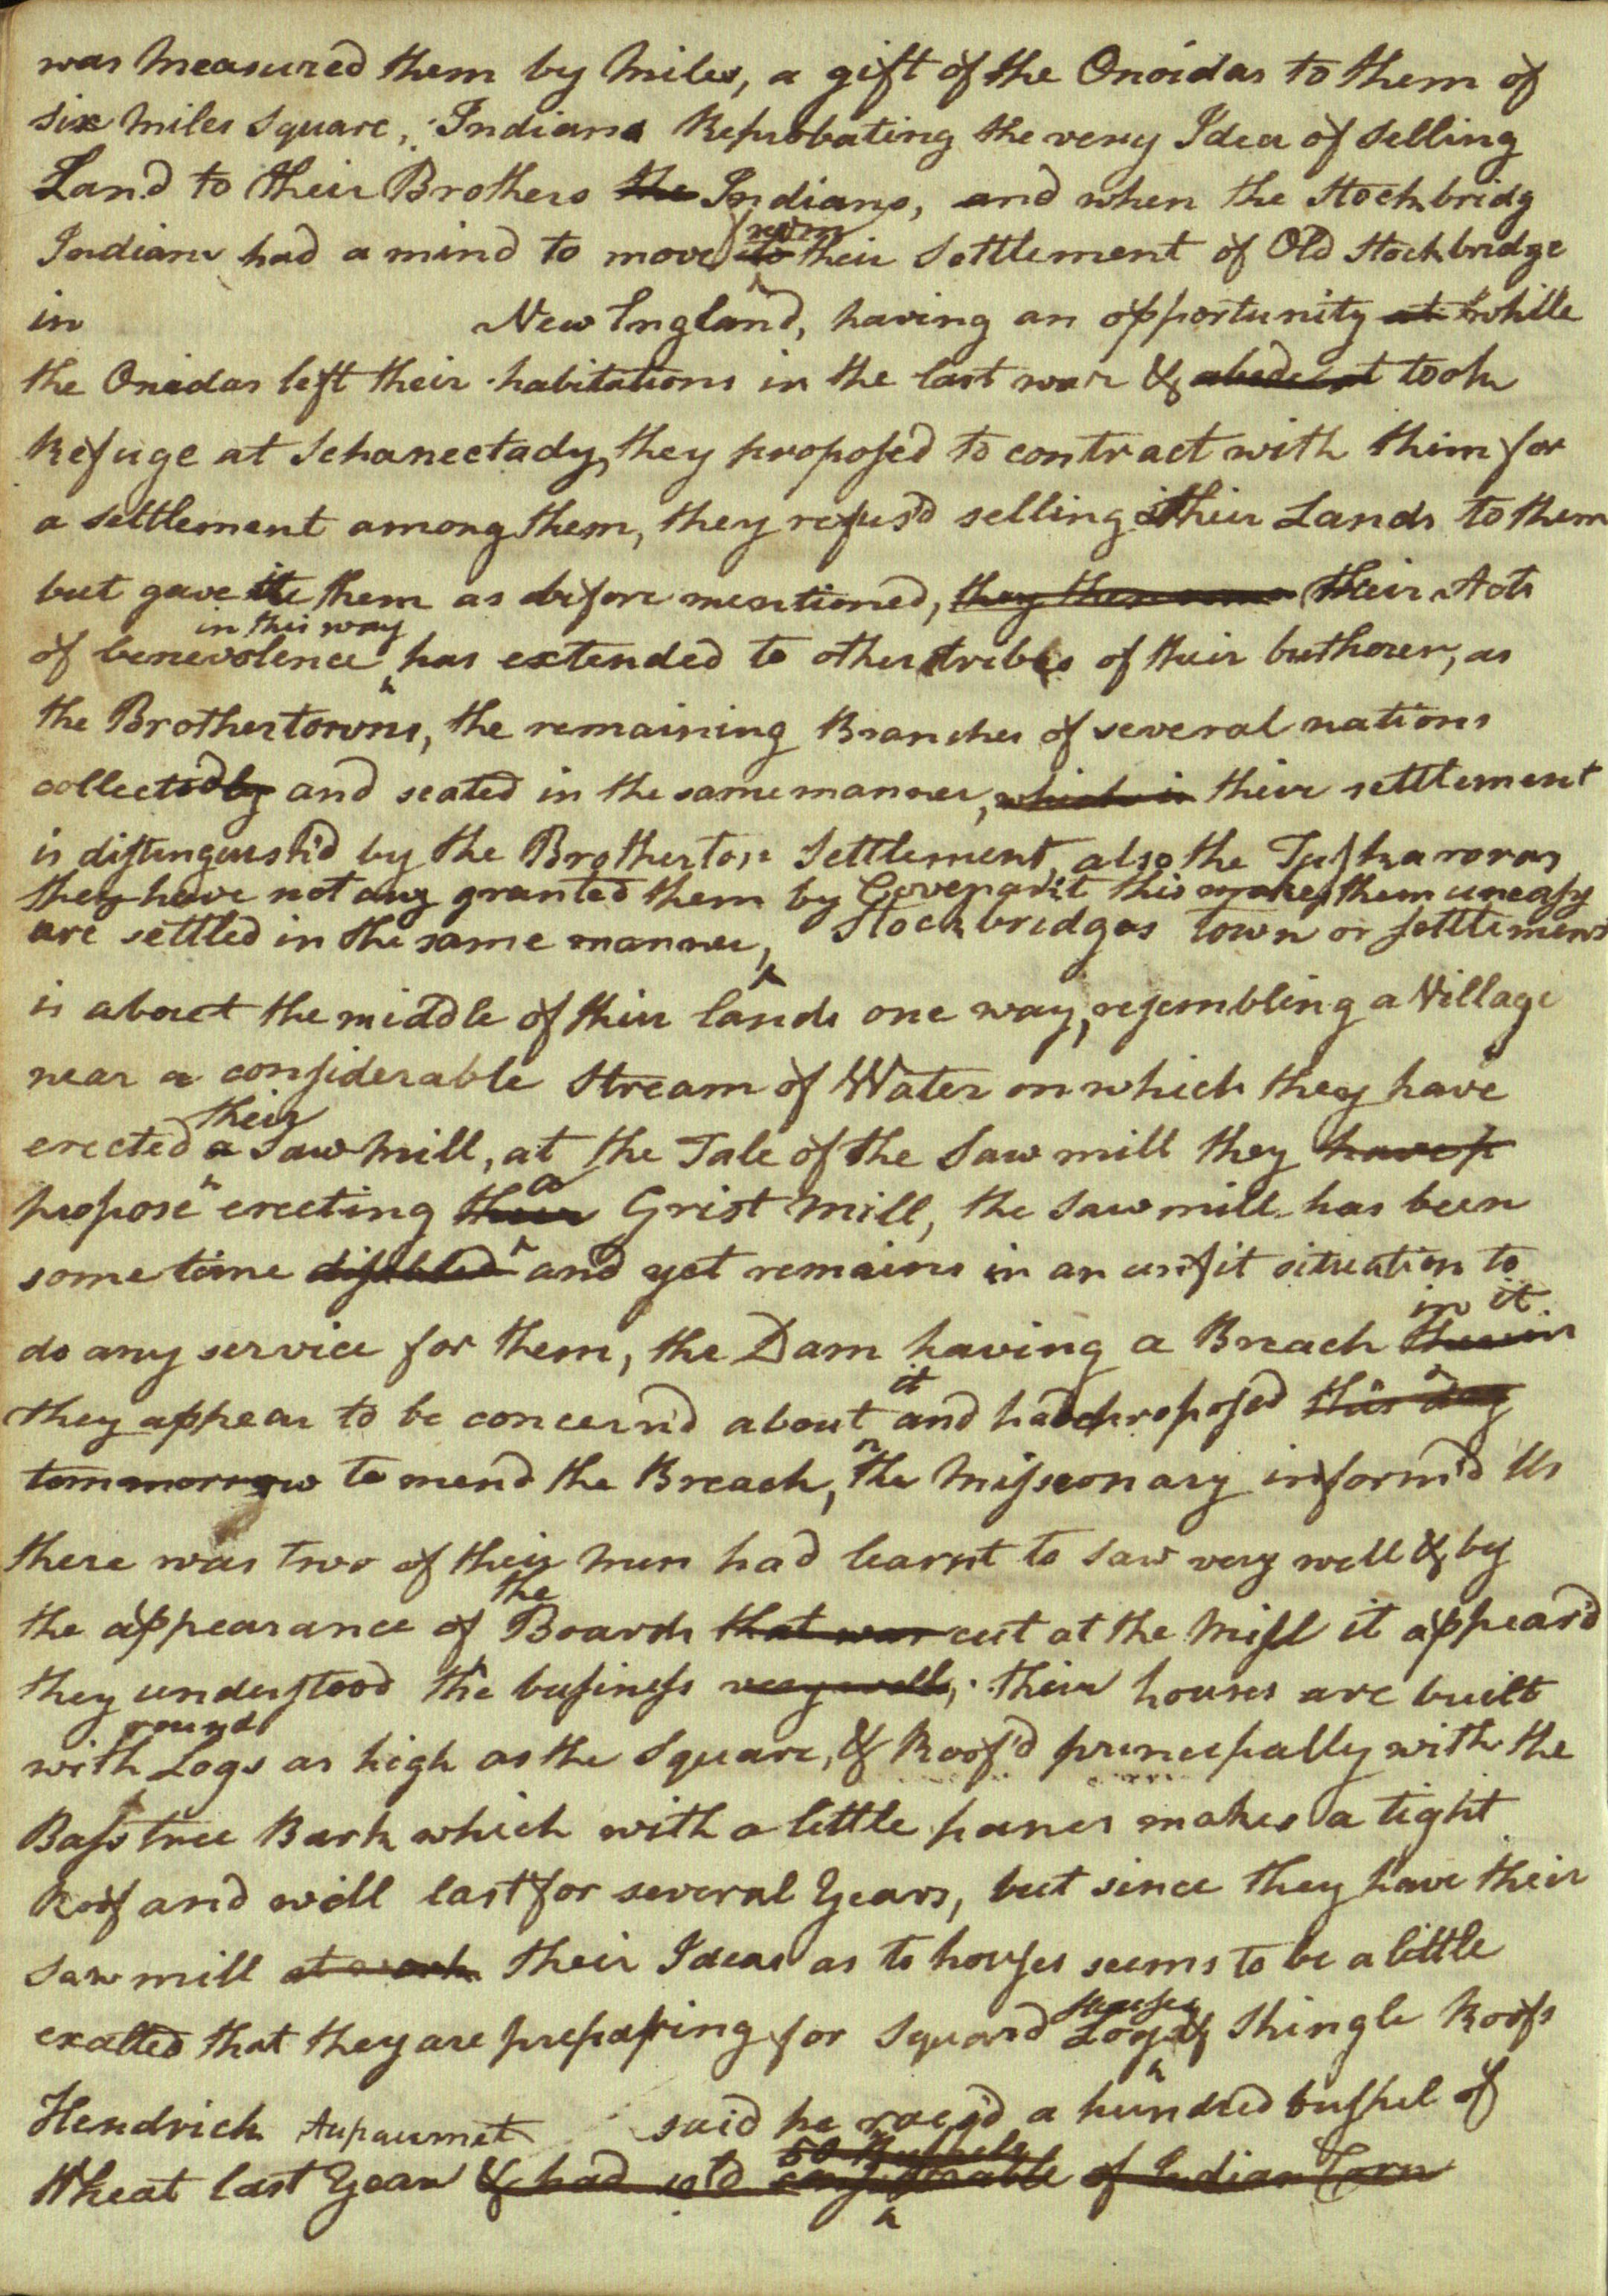 was Measured them by Miles, a gift of the Onoidas to them of
six Miles Square, Indians Reprobating the very Idea of Selling
Land to their Brothers the Indians, and when the Stockbridg
from
Indians had a mind to move to their Settlement of Old Stockbridge
in New England, having an opportunity at while
the Onidas left their habitations in the last war & took
Refuge at Schanectady, they proposed to contract with them for
a settlement among them, they refus'd selling their Lands to them
but gave it them as before mentioned, they then their Acts
in this way
of benevolence has extended to other tribes of their butheren, as
the Brothertowns, the remaining Branches of several nations
collected by and seated in the same manner, which is their settlement
is distinguish'd by the Brotherton Settlement, also the Tuskaroras
they have not any granted them by Covenant this makes them uneasy
are settled in the same manner, Stockbridges town or settlement
is about the middle of their lands one way, resembling a Village
near a considerable Stream of Water on which they have
their
erected a Saw Mill, at the Tale of the Saw mill they have p
a
propose erecting their Grist Mill, the Saw mill has been
some time disabled and yet remains in an unfit situation to
in it.
do any service for them, the Dam having a Breach therein
it
they appear to be concern'd about and had proposed this day
tommorrow to mend the Breach, the Missionary inform'd Us
there was two of their Men had learnt to saw very well & by
the
the appearance of Boards that was cut at the Mill it appear'd
they understood the business very well, their houses are built
round
with Logs as high as the Square, & Roof'd principally with the
Bass tree Bark which with a little panes makes a tight
Roof and will last for several Years, but since they have their
saw mill at work their Ideas as to houses seems to be a little
houses
exalted that they are preparing for Squard Logs & Shingle Roofs
Hendrick Aupaumet said he rais'd a hundred bushel of
50 Bushels
Wheat last Year & had sold considerable of Indian Corn